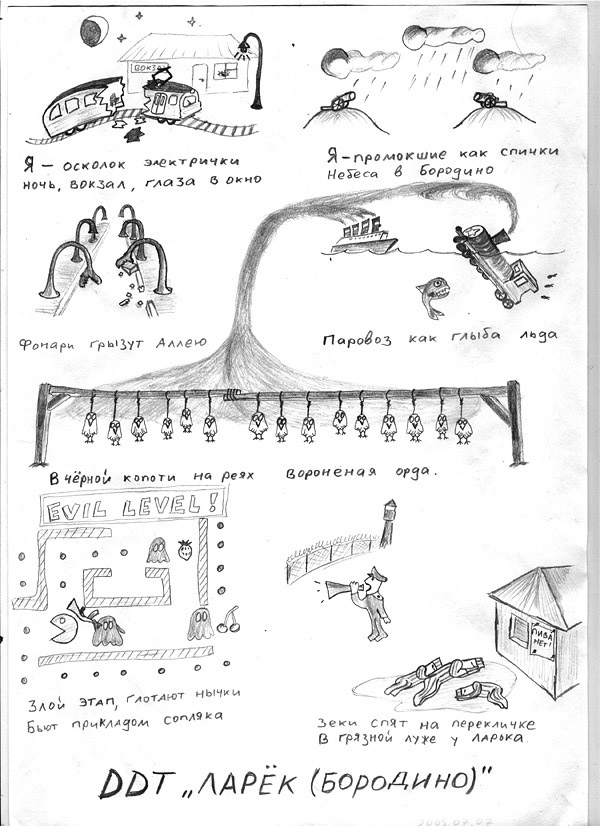 ВОКЗАЛ
Я – осколок электрички
ночь, вокзал, глаза в окно
Я – промокшие как спички
Небеса в Бородино
Фонари грызут Аллею
Паровоз как глыба льда
В чёрной копоти на реях вороненая орда.
EVIL LEVEL!
Злой этап, глотают нычки
Бьют прикладом сопляка
ПИВА
НЕТ!
Зеки спят на перекличке
В грязной луже у ларька.
DDT „ЛАРЁК (БОРОДИНО)"
2005.07.07